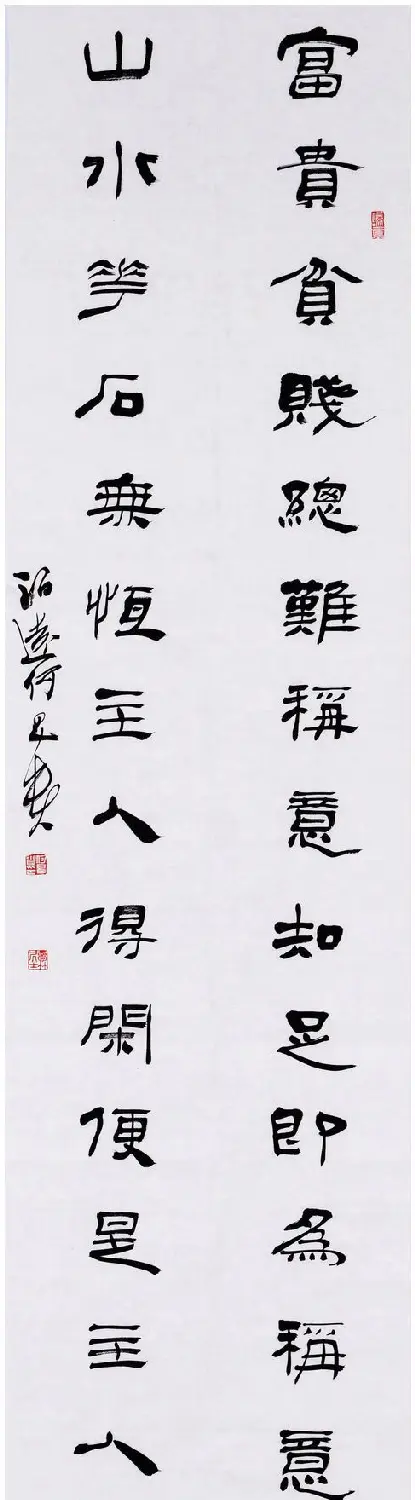 富貴貧賤總難稱意知足即為稱意
山水花石無恒主人得閑便是主人